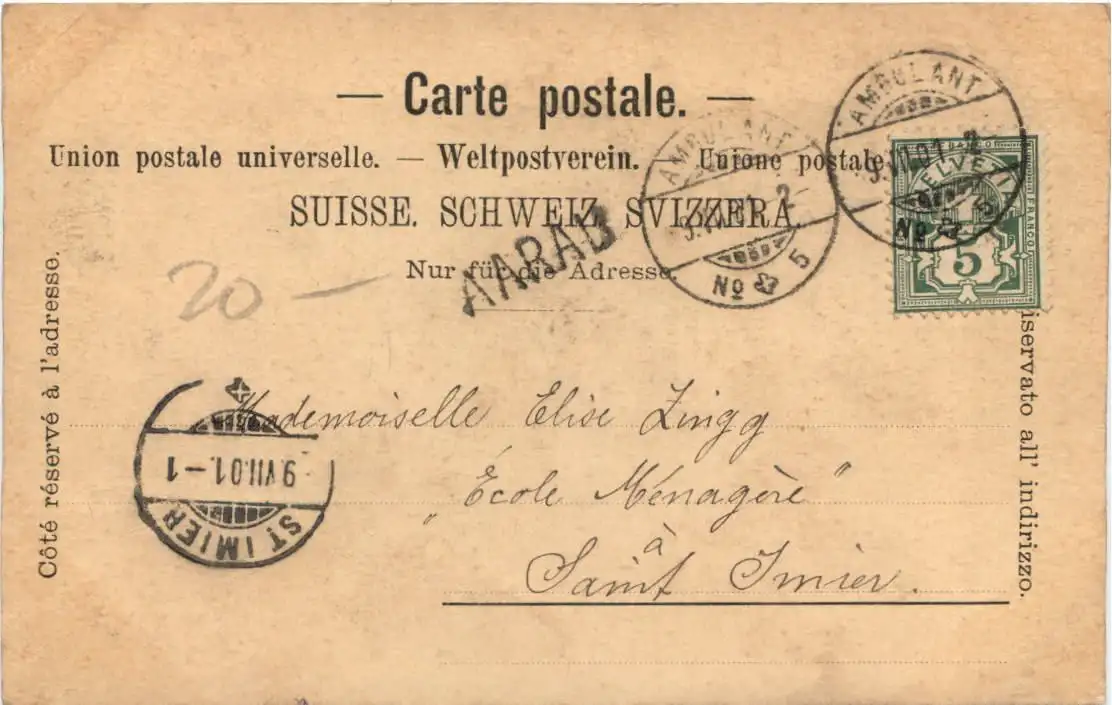 — Carte postale. —
Union postale universelle. — Weltpostverein. — Unione postale
SUISSE. SCHWEIZ. SVIZZERA.
Nur für die Adresse.
AMBULANT
9.VII.01. 2
No 5
AMBULANT
2-
No 5
HELVETIA
FRANCO
5
AARAU
20 —
Côté réservé à l'adresse.
riservato all' indirizzo.
9.VII.01.-1
ST IMIER
Mademoiselle Elise Zingg
„École Ménagère"
à
Saint Imier.